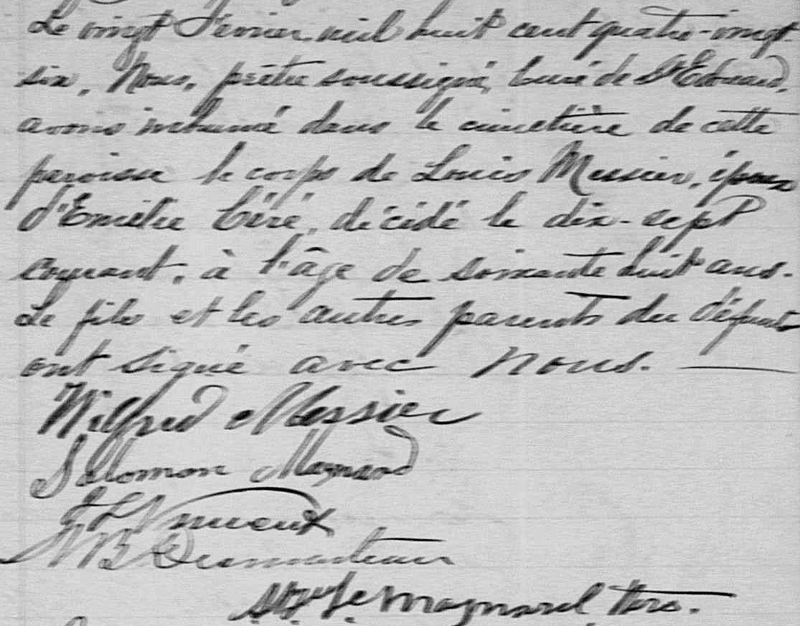 Le vingt Février mil huit cent quatre-vingt-
six, Nous, prêtre soussigné, Curé de St Edouard,
avons inhumé dans le cimetière de cette
paroisse le corps de Louis Messier, époux
d'Emélie Céré, décédé le dix-sept
courant, à l'âge de soixante huit ans.
Le fils et les autres parents du défunt
ont signé avec nous.
Wilfred Messier
Salomon Maynard
N B Desmarteau
Maynard